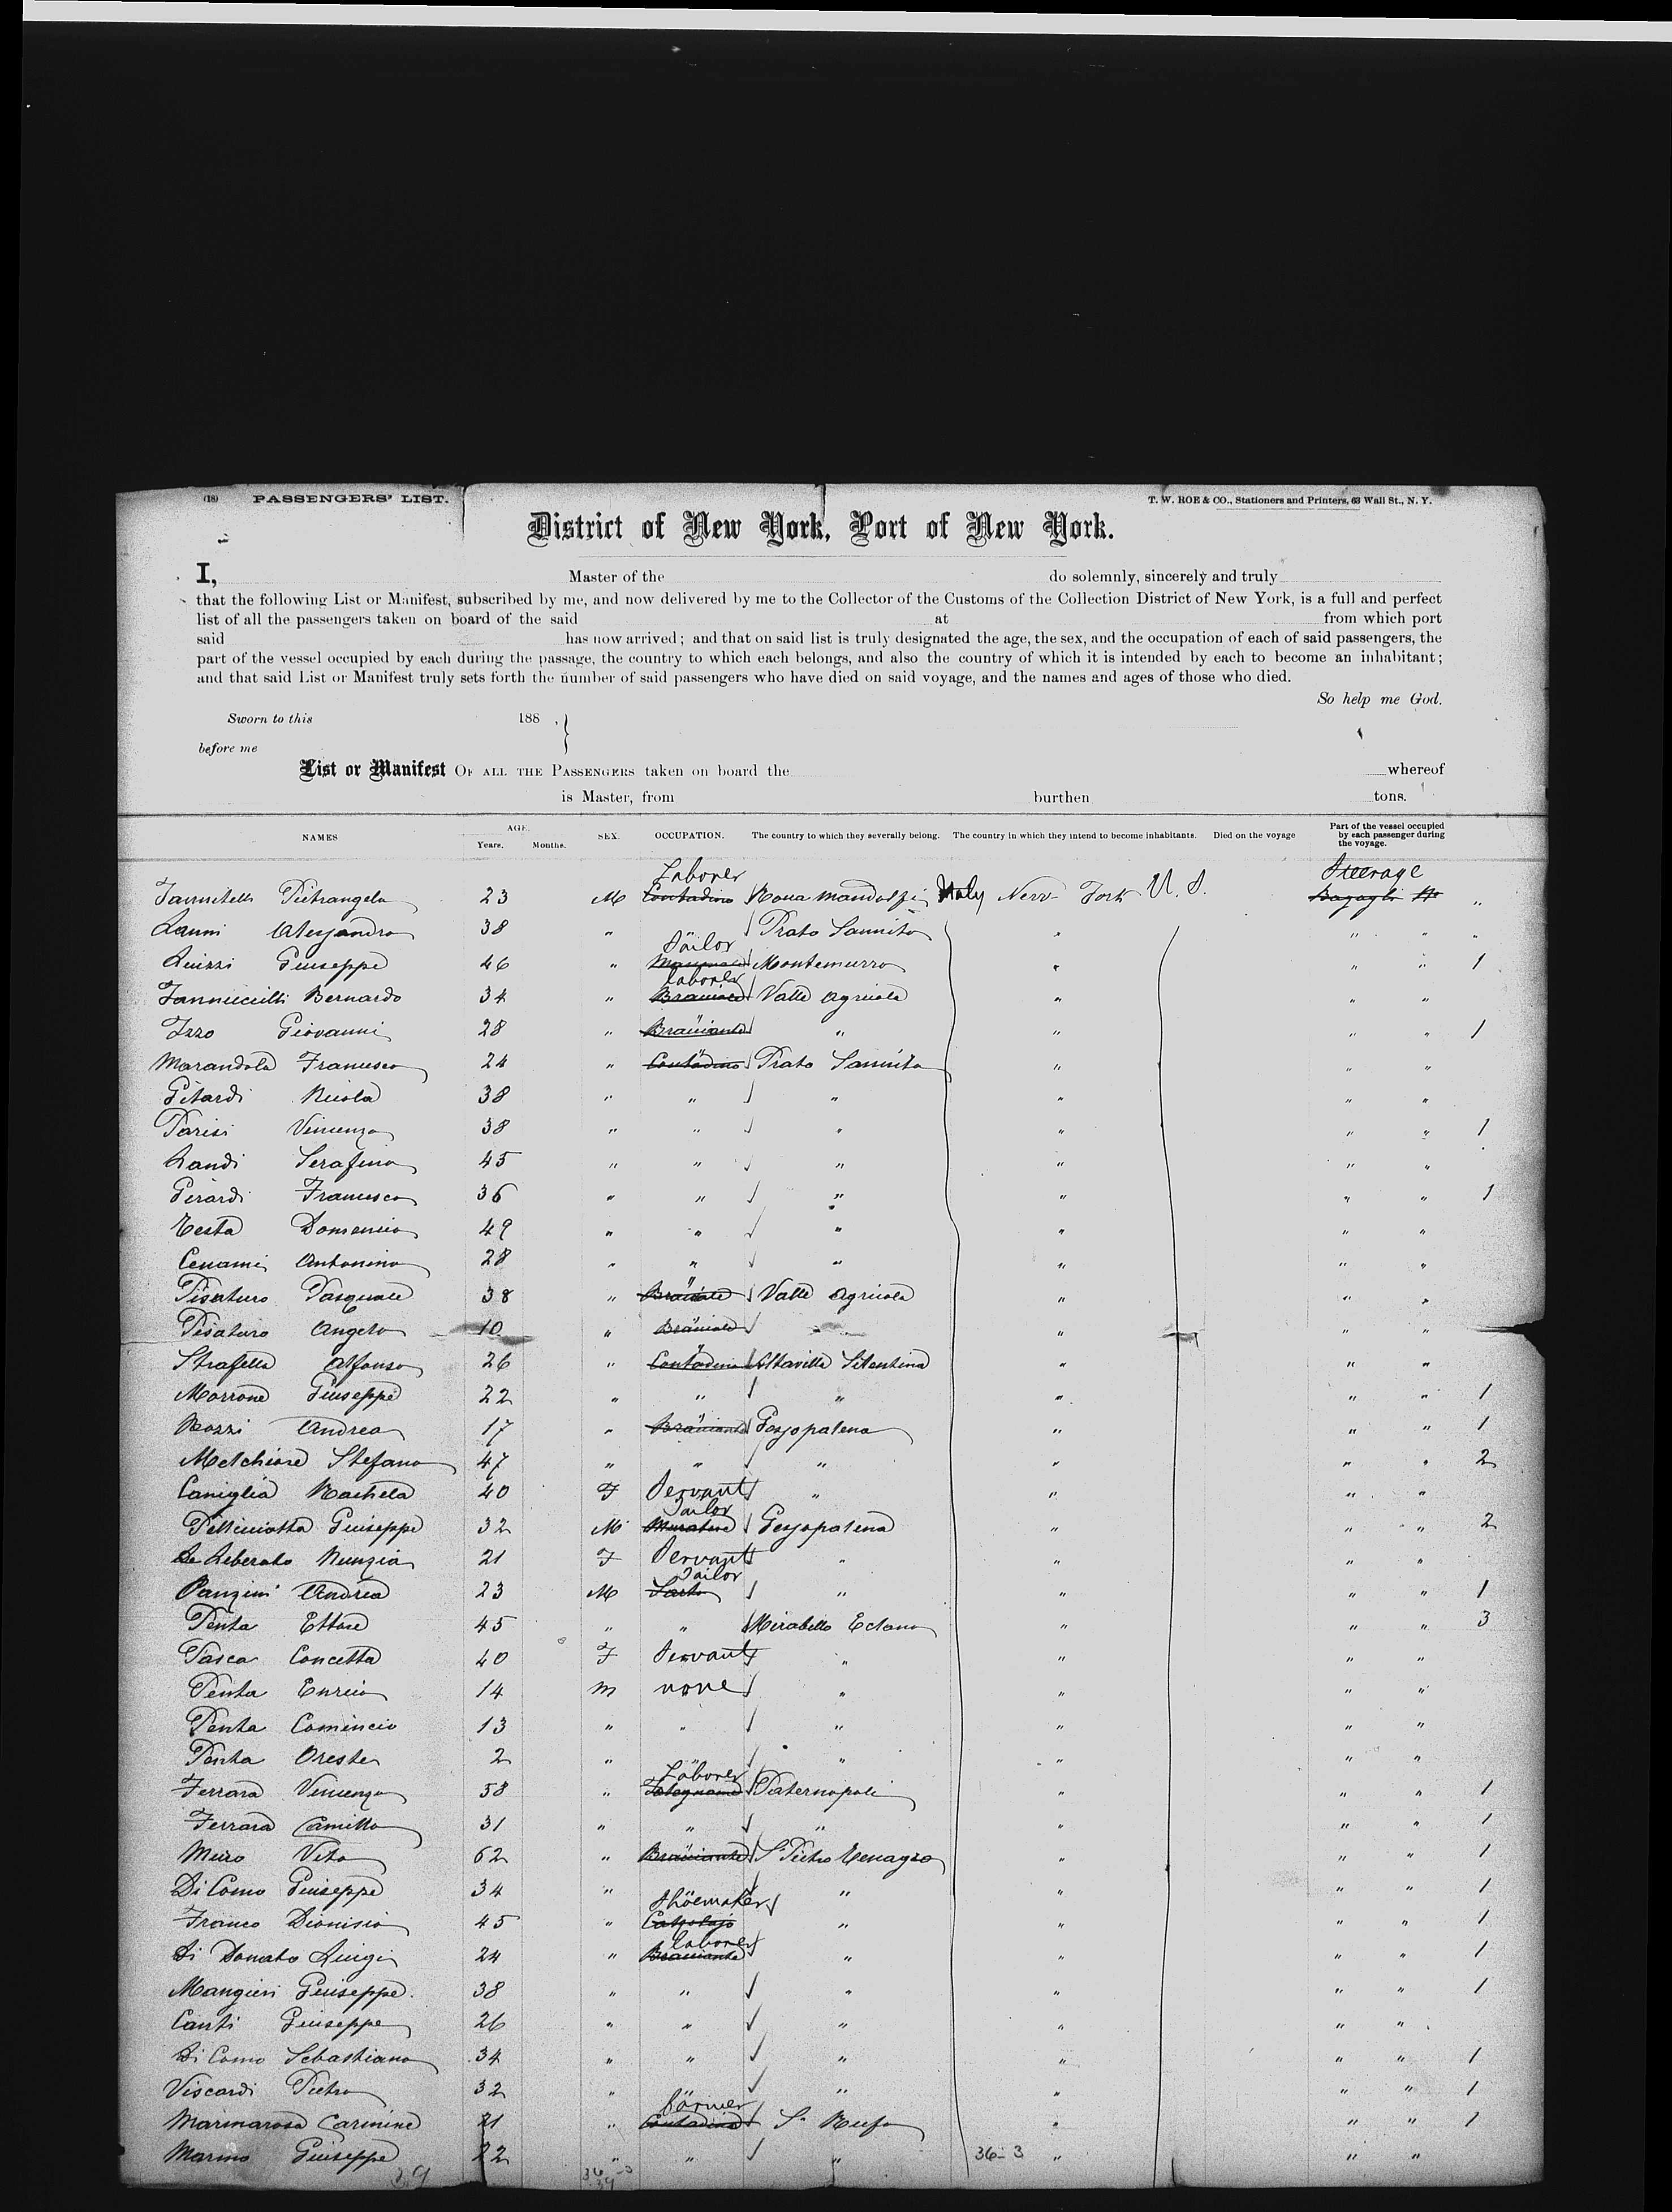 (18) PASSENGERS' LIST. T. W. ROE & CO., Stationers and Printers, 63 Wall St., N. Y.
District of New York, Port of New York.
I, Master of the do solemnly, sincerely and truly
that the following List or Manifest, subscribed by me, and now delivered by me to the Collector of the Customs of the Collection District of New York, is a full and perfect
list of all the passengers taken on board of the said at from which port
said has now arrived; and that on said list is truly designated the age, the sex, and the occupation of each of said passengers, the
part of the vessel occupied by each during the passage, the country to which each belongs, and also the country of which it is intended by each to become an inhabitant;
and that said List or Manifest truly sets forth the number of said passengers who have died on said voyage, and the names and ages of those who died.
So help me God.
Sworn to this 188 ,
before me
List or Manifest OF ALL THE PASSENGERS taken on board the whereof
is Master, from burthen tons.
NAMES AGE. Years. Months. SEX. OCCUPATION. The country to which they severally belong. The country in which they intend to become inhabitants. Died on the voyage Part of the vessel occupied by each passenger during the voyage.
Laborer Steerage
Pietrangelo 23 M Contadino Italy New York U. S. Bagagli No "
Lanni Alessandro 38 " Prato Sannita " " " "
Tailor
Giuseppe 46 " Montemurro " " " 1
laborer
Bernardo 34 " Valle Agricola " " "
Izzo Giovanni 28 " Bracciante " " " " 1
Marandola Francesco 24 " Contadino Prato Sannita " " "
Pitardi Nicola 38 " " " " " "
Parisi Vincenzo 38 " " " " " " 1
Landi Serafino 45 " " " " " "
Francesco 36 " " " " " " 1
Testa Domenico 49 " " " " " "
Cenami Antonino 28 " " " " " "
Pisaturo Pasquale 38 " Valle Agricola " " "
Pisaturo Angelo 10 " " " " "
Strafella Alfonso 26 " Contadino Altavilla Silentina " " "
Morrone Giuseppe 22 " " " " " " 1
Rozzi Andrea 17 " Bracciante Gessopalena " " " 1
Melchiore Stefano 47 " " " " " " 2
Caniglia Rachela 40 F Servant " " " "
Tailor
Pellicciotta Giuseppe 32 M Muratore Gessopalena " " " 2
De Liberato Nunzia 21 F Servant " " " "
Tailor
Panzini Andrea 23 M Sarto " " " " 1
Penta Ettore 45 " " Mirabello Eclano " " " 3
Pasca Concetta 40 F Servant " " " "
Penta Enrico 14 m none " " " "
Penta Comincio 13 " " " " " "
Penta Oreste 2 " " " " " "
Laborer
Ferrara Vincenzo 58 " Falegname Paternopoli " " " 1
Ferrara Camillo 31 " " " " " " 1
Muro Vito 62 " Bracciante S. Pietro " " " 1
Di Como Giuseppe 34 " " " " " 1
Shoemaker
Franco Dionisio 45 " Calzolajo " " " " 1
laborer
Di Donato Luigi 24 " Bracciante " " " " 1
Mangieri Giuseppe. 38 " " " " " " 1
Canti Giuseppe 26 " " " " " "
Di Como Sebastiano 34 " " " " " " 1
Viscardi Pietro 32 " " " " " 1
farmer
Marinarosa Carmine 21 " Contadino S. Rufo " " " 1
Marino Giuseppe 22 " " " 36-3 " " "
39